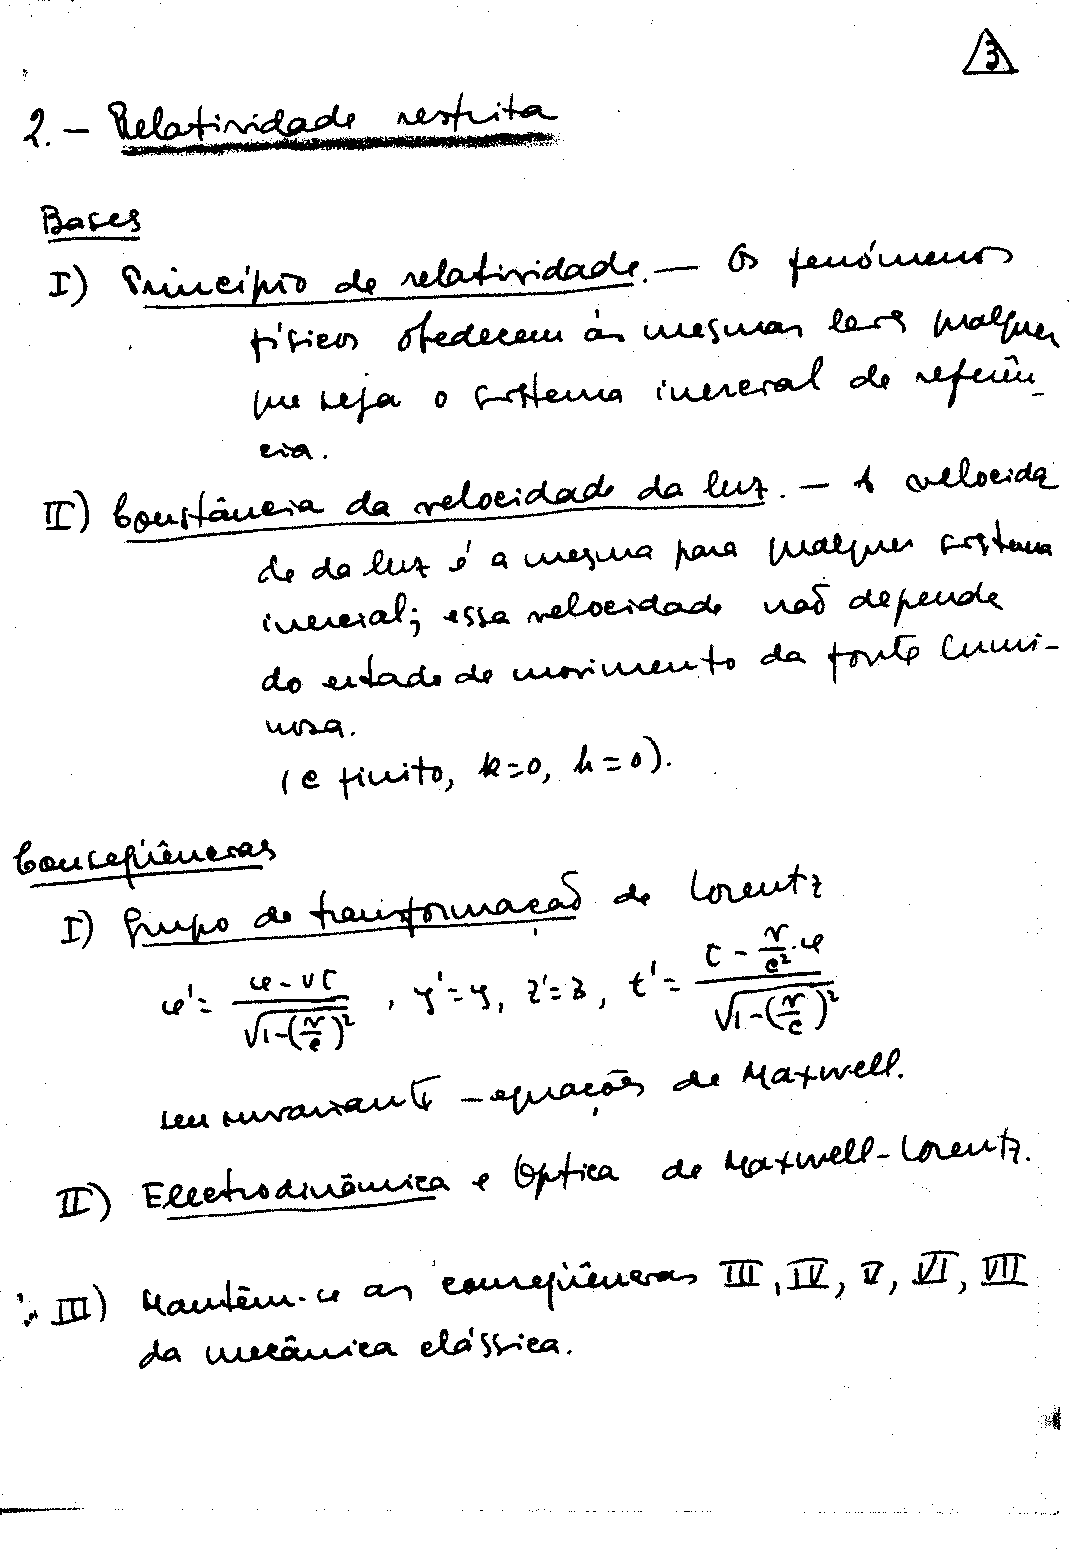 3
2. – Relatividade restrita
Bases
I) Princípio de relatividade. — Os fenómenos
físicos obedecem às mesmas leis qualquer
que seja o sistema inercial de referên-
cia.
II) Constância da velocidade da luz. — A velocida
de da luz é a mesma para qualquer sistema
inercial; essa velocidade não depende
do estado de movimento da fonte lumi-
nosa.
(c finito, k=0, h=0).
Conseqüências
I) Grupo de transformação de Lorentz
x' = (x - vt) / √(1-(v/c)²), y'=y, z'=z, t' = (t - v/c² · x) / √(1-(v/c)²)
seu invariante – equações de Maxwell.
II) Electrodinâmica e Óptica de Maxwell-Lorentz.
III) Mantêm-se as conseqüências III, IV, V, VI, VII
da mecânica clássica.